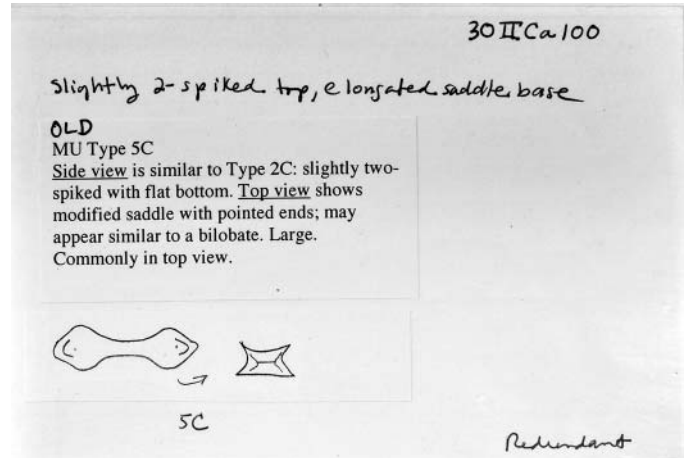 30 II Ca 100
Slightly 2-spiked top, elongated saddle base
OLD
MU Type 5C
Side view is similar to Type 2C: slightly two-
spiked with flat bottom. Top view shows
modified saddle with pointed ends; may
appear similar to a bilobate. Large.
Commonly in top view.
5C
Redundant